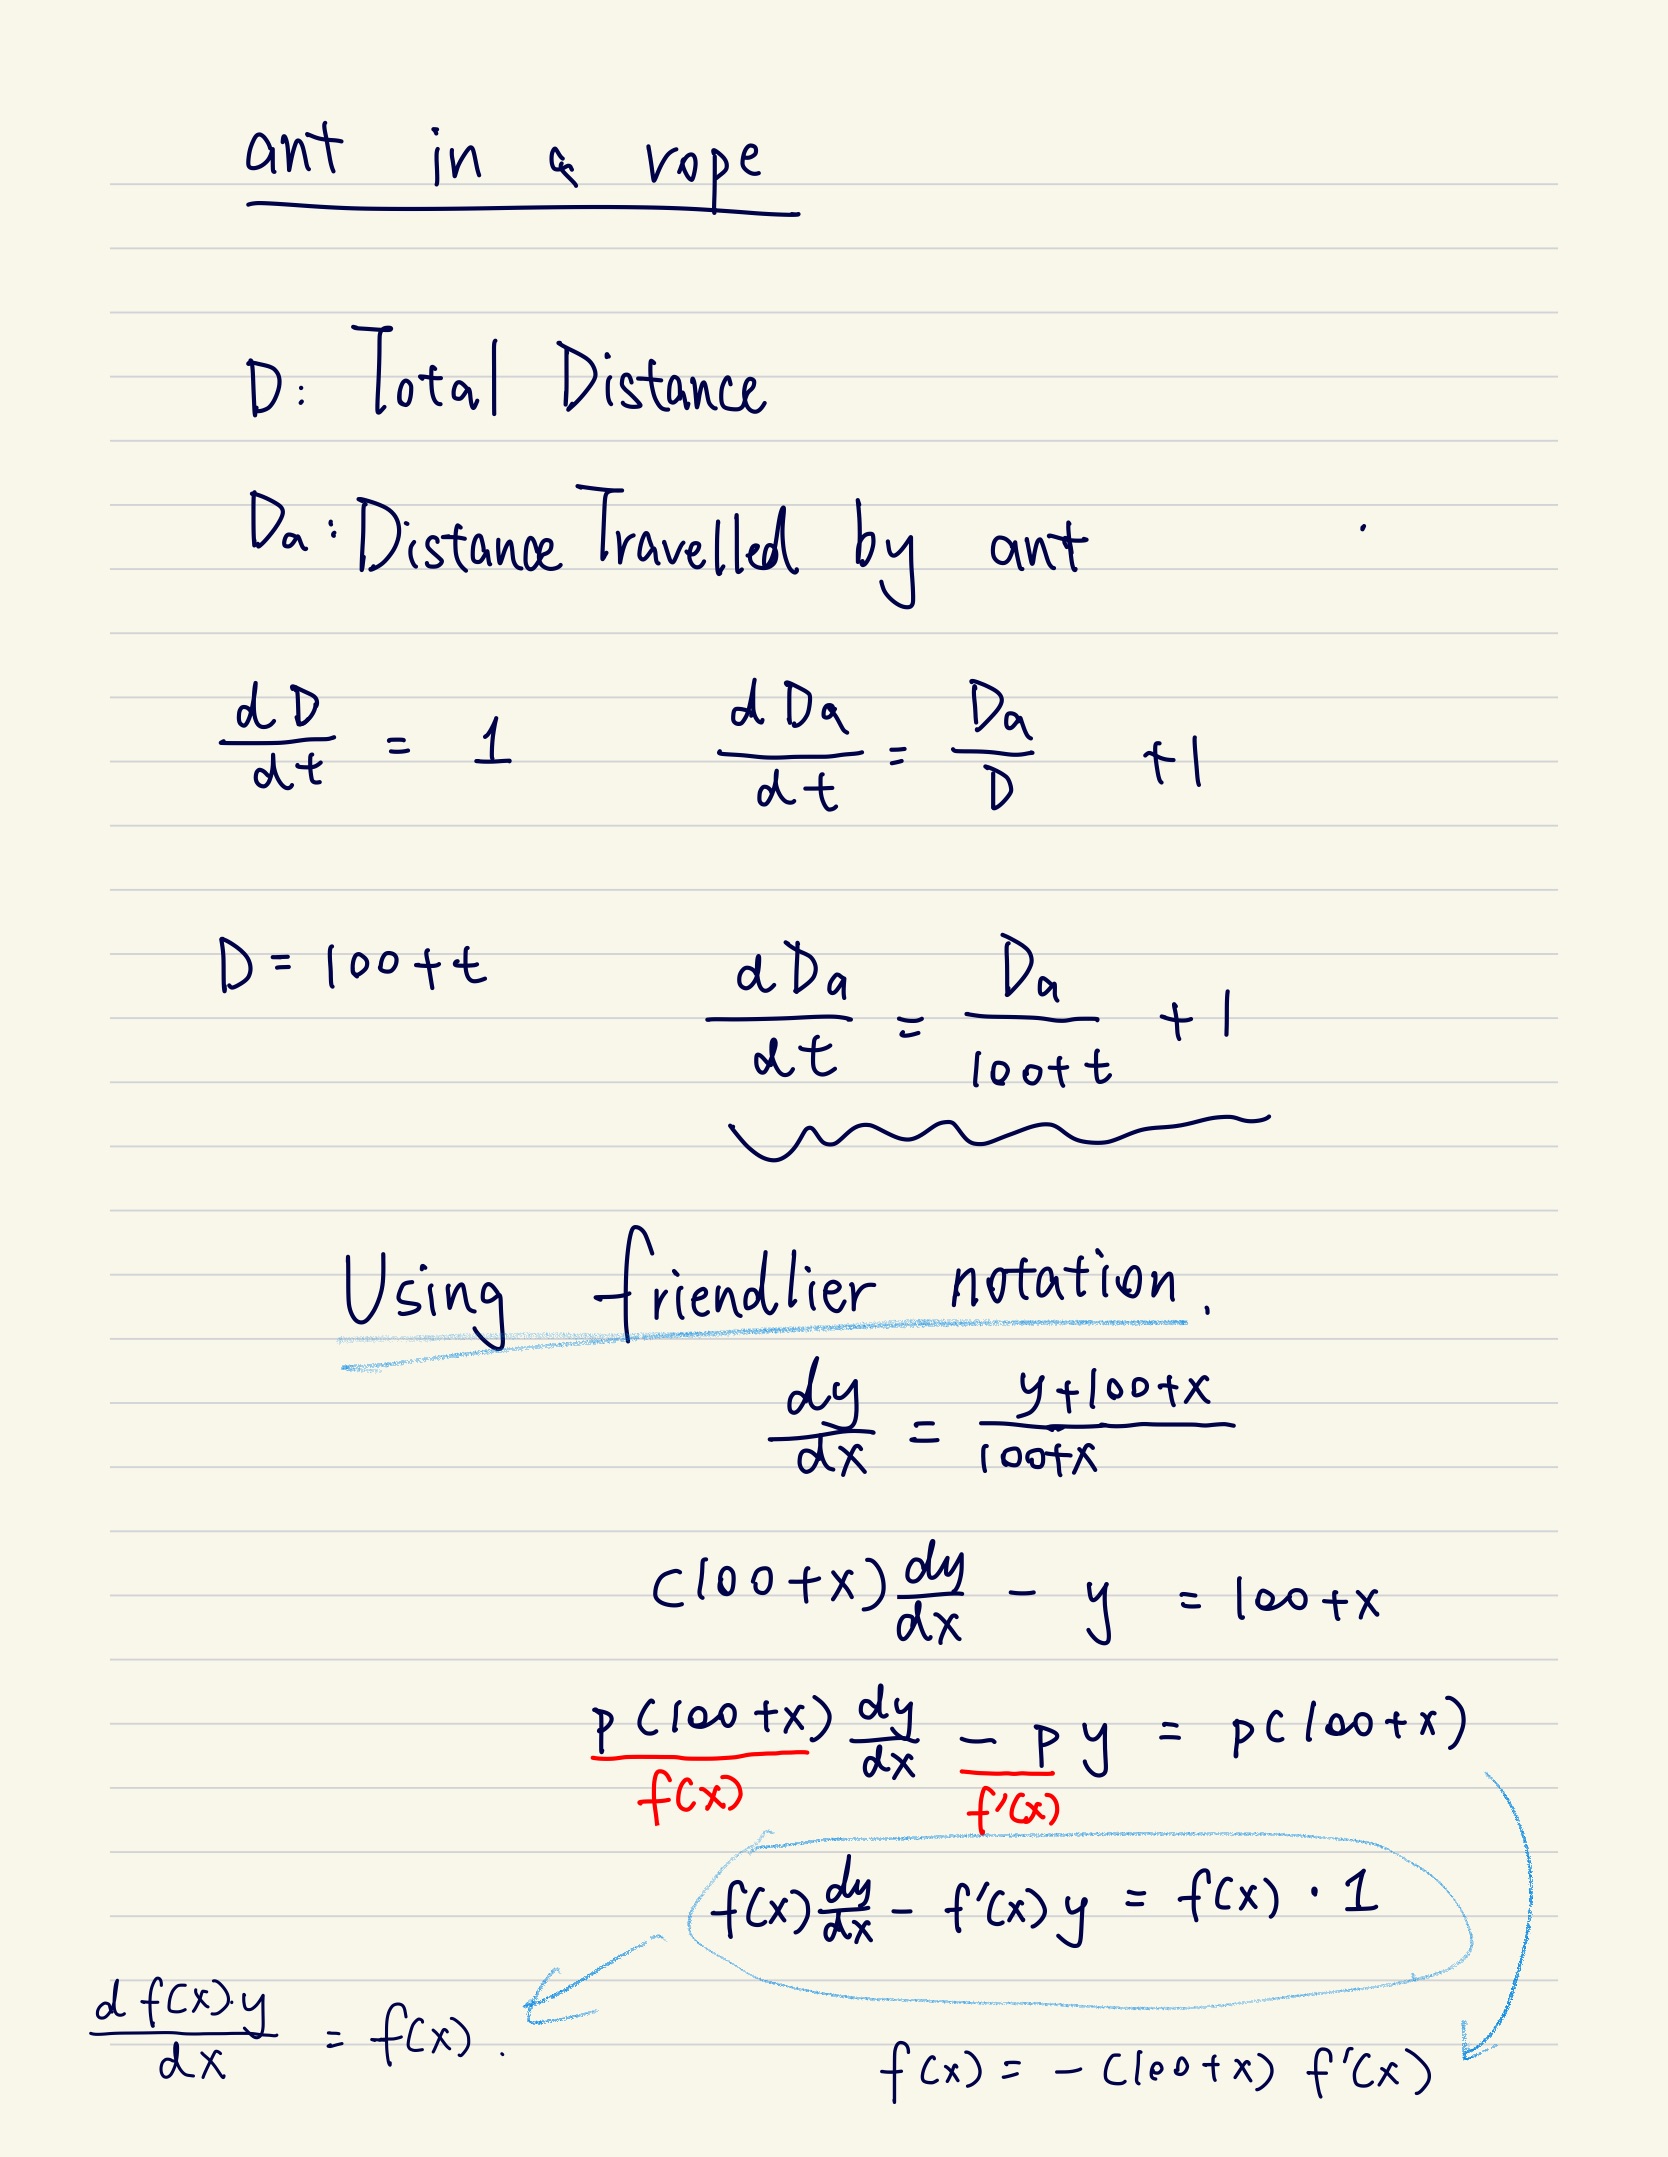 ant in a rope
D: Total Distance
Da: Distance Travelled by ant
dD/dt = 1 dDa/dt = Da/D +1
D = 100+t dDa/dt = Da/100+t +1
Using friendlier notation.
dy/dx = y+100+x/100+x
(100+x)dy/dx - y = 100+x
p(100+x) dy/dx - py = p(100+x)
f(x) f'(x)
f(x)dy/dx - f'(x)y = f(x) · 1
d f(x)·y/dx = f(x).
f(x) = -(100+x) f'(x)